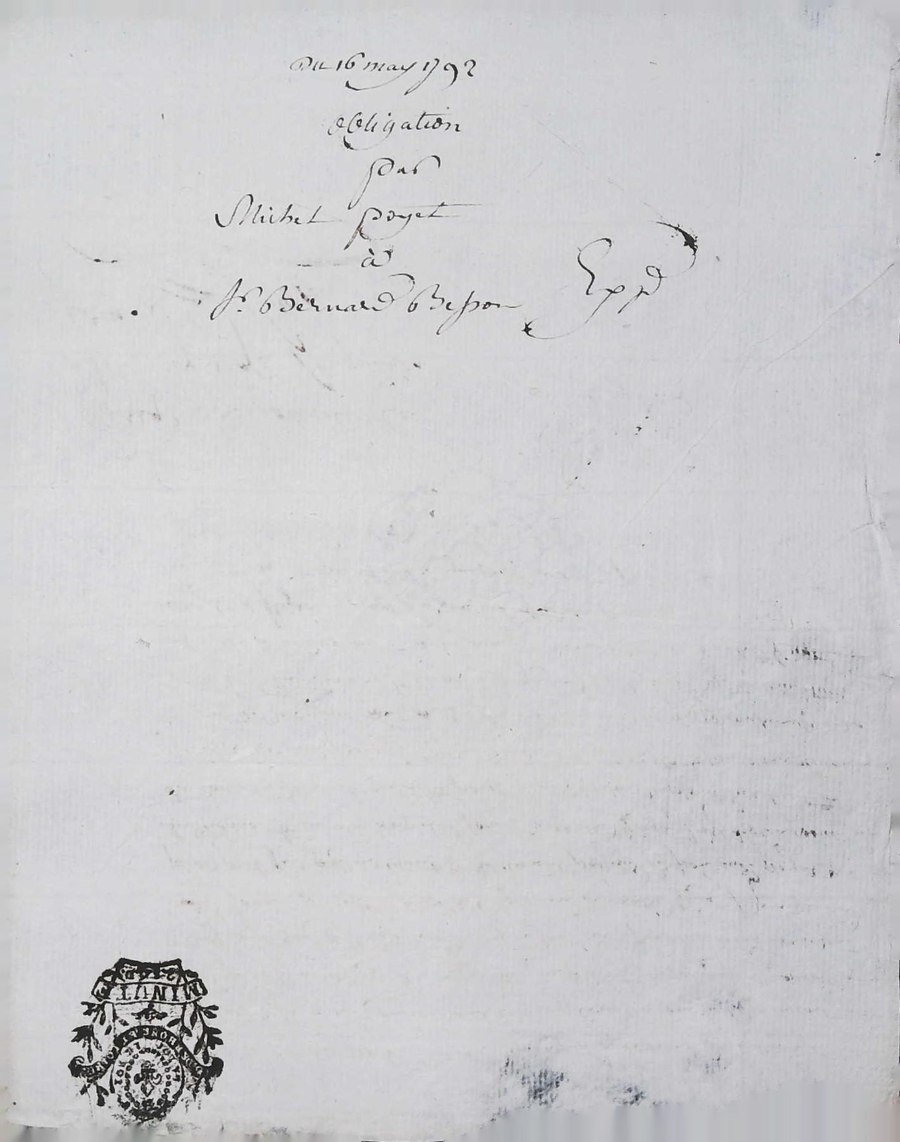 Du 16 may 1792
obligation
par
Michel poyet
à
Sr. Bernard Besson
Expd
MINUTE